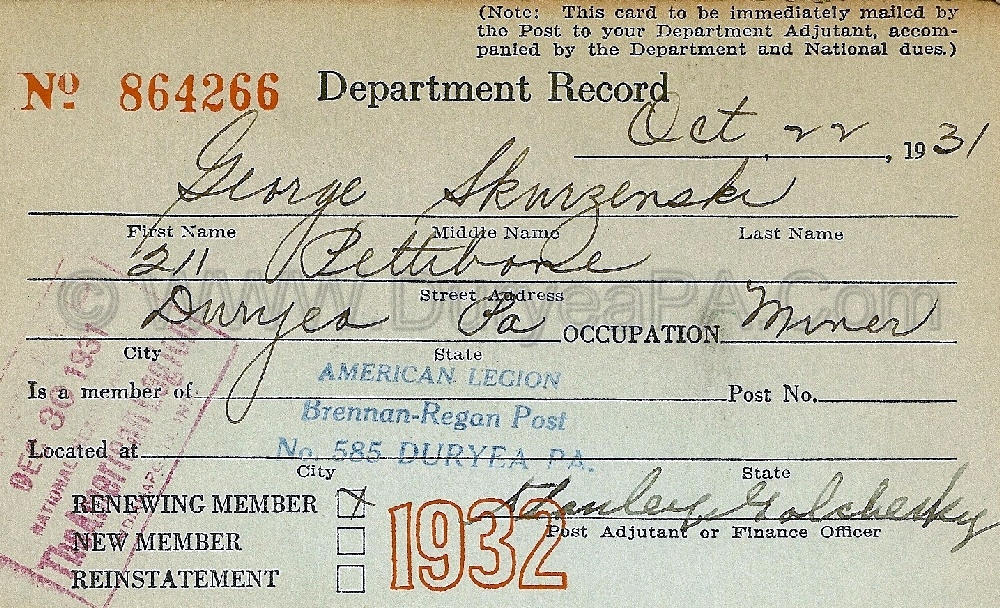 (Note: This card to be immediately mailed by
the Post to your Department Adjutant, accom-
panied by the Department and National dues.)
Nº 864266 Department Record
Oct 22, 1931
George Skurzenski
First Name Middle Name Last Name
211 Pettibone
Street Address
Duryea Pa OCCUPATION Miner
City State
© www.DuryeaPA.Com
AMERICAN LEGION
Is a member of Post No.
Brennan-Regan Post
Located at No. 585 DURYEA PA.
City State
RENEWING MEMBER X Stanley
Post Adjutant or Finance Officer
NEW MEMBER
REINSTATEMENT
1932
DEC 30 1931
NATIONAL
The American Legion